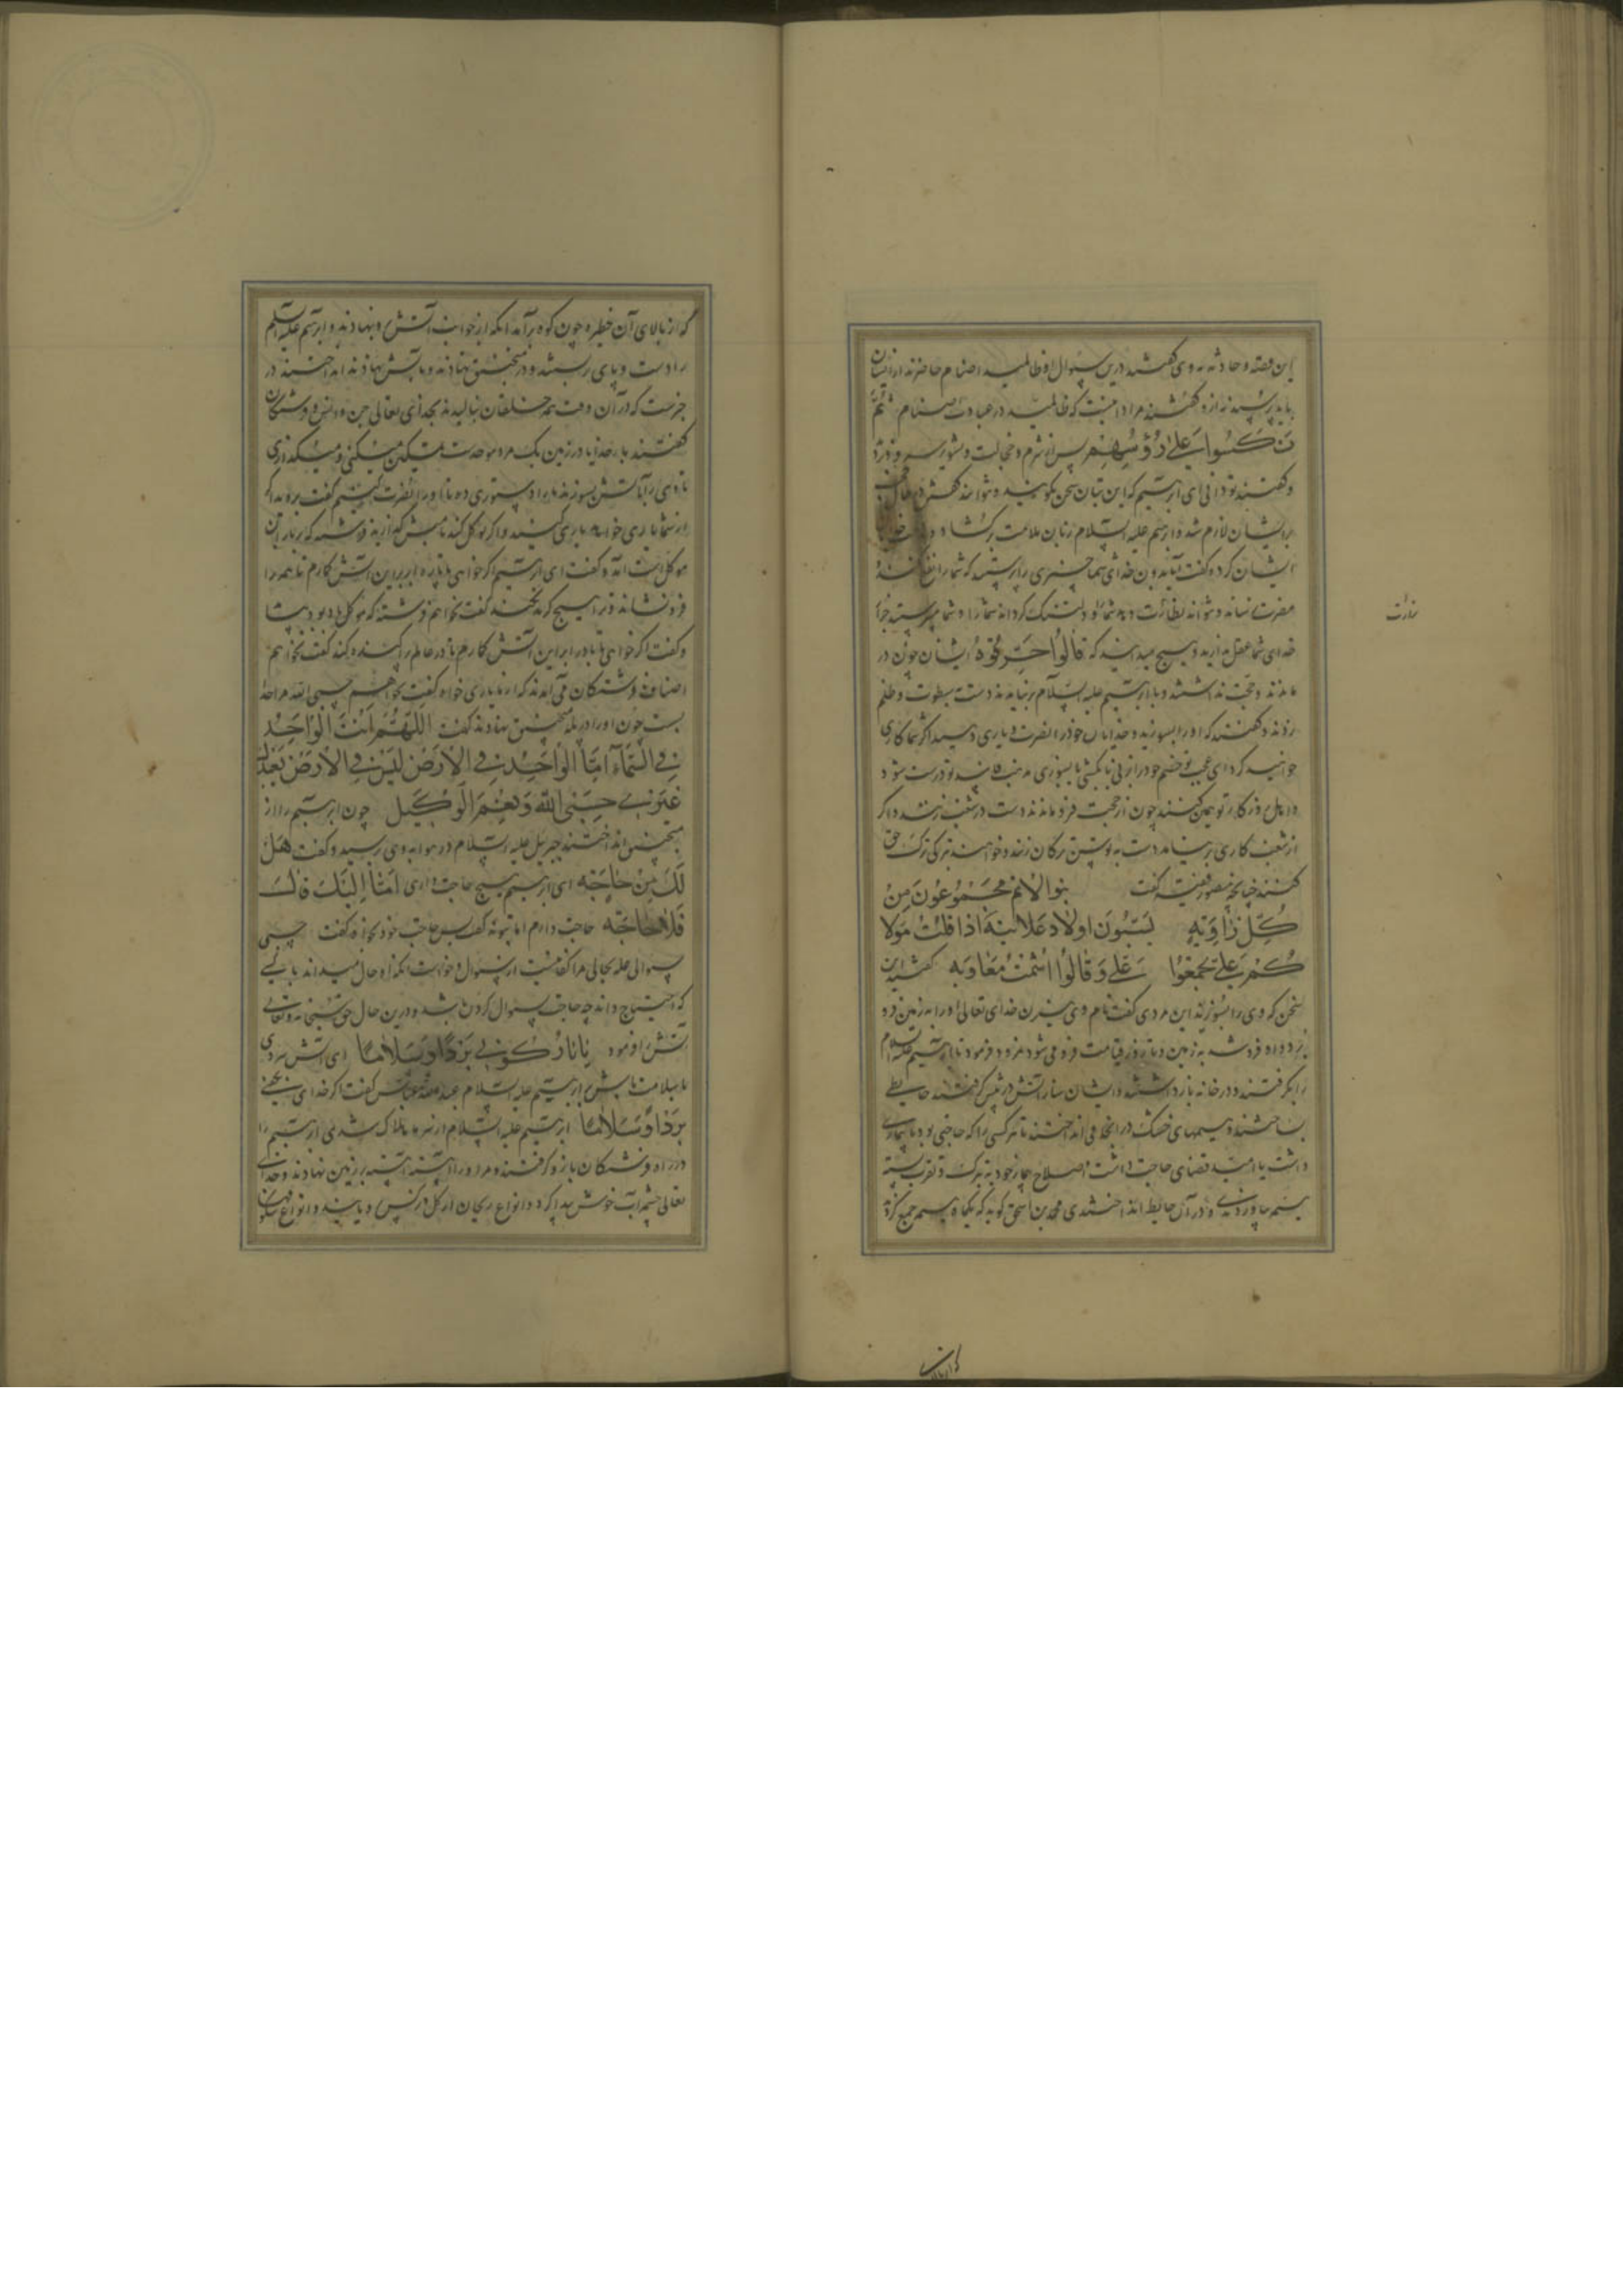 این قصه و حادثه به وی گفتند درین سئوال او ظالمید اصنام حاضرند از ایشان
بباید پرسید نه از و گفته‌اند مراد اینست که ظالمید در عبادت اصنام ثُمَّ
نُكِسُوا عَلىٰ رُؤُسِهِمْ پس از شرم و خجالت و تشویر سر فرو
و گفتند تو دانی ای ابرهیم که این بتان سخن نگویند و نتوانند گفتن
برایشان لازم شد و ابرهیم علیه السلام زبان ملامت برگشاد و
ایشان کرد و گفت آیا بدون خدای شما چیزی را پرستید که شما را نفع نکند
مضرت نرساند و نتواند
خدای شما عقل ندارید و هیچ نمیدانید که قالُوا حَرِّقُوهُ ایشان چون در
ماندند و حجت نداشتند و با ابرهیم علیه السلام برنیامدند دست بسطوت و ظلم
زدند و گفتند که او را بسوزید و خدایان خود را نصرت و یاری دهید اگر شما کاری
خواهید کرد ای عجب تو خصم خود را
چون از حجت فرو ماندند دست در شغب زنند و اگر
از شغب کاری بر نیاید دست
گفتند چنانکه منصور فقیه گفت بنوا لانم مجموعون من
كل زاوية يسبون اولاد علانية اذا قلت مولا
كم علي تجمعوا على وقالوا اشمت معاوية گفتند این
سخن که وی را بسوزید این مردی گفت نام وی هیزن خدای تعالی او را به زمین فرو
برد و او فرو شد به زمین و تا روز قیامت فرو می‌شود نمرود فرمود تا ابرهیم علیه السلام
را بگرفتند و در خانه باز داشتند و ایشان ساز آتش در پیش گرفتند حایطی
بساختند و هیمهای خشک در آنجا می انداختند تا هر کسی را که حاجتی بود یا بیماری
داشت یا امید قضای حاجت داشت و اصلاح کار خود به تبرک و تقرب پشته
هیمه بیاوردندی و در آن حایط انداختندی محمد بن اسحق گوید که یکماه هیمه جمع کردند
نذارت
که از بالای
که از بالای آن حظیره چون کوه برآمد آنکه از جوانب آتش در نهادند و ابرهیم علیه السلم
را دست و پای بر بستند و در منجنیق نهادند و به آتش انداختند در
خبرست که در آن وقت همه خلقان بنالیدند بخدای تعالی جن و انس و فرشتگان
گفتند بار خدایا در زمین یک مرد موحدست
تا وی را به آتش بسوزند ما را دستوری ده تا او را نصرت کنیم گفت بروید اگر
از شما یاری خواهد یاری کنید و اگر توکل کند بمنش گذارید فرشته که بر باران
موکل است آمد و گفت ای ابرهیم اگر خواهی تا پاره ابر برین آتش گمارم تا همه را
فرو نشاند و ترا هیچ گزند نکند گفت نخواهم فرشته که موکل باد بود بیامد
و گفت اگر خواهی تا باد را بر این آتش گمارم تا در عالم پراکنده کند گفت نخواهم
اصناف فرشتگان می آمدند که از ما یاری خواه گفت نخواهم حسبی الله مرا خدا
بست چون او را در پله منجنیق نهادند گفت اللّهُمَّ اَنْتَ الْوَاحِدُ
فِی السَّمَآءِ اَنَا الْوَاحِدُ فِي الْاَرْضِ لَيْسَ فِي الْاَرْضِ يَعْبُدُكَ
غَيْرِي حَسْبِيَ اللّٰهُ وَنِعْمَ الْوَكِيل چون ابرهیم را از
منجنیق انداختند جبریل علیه السلام در هوا به وی رسید و گفت هَلْ
لَكَ مِنْ حَاجَة ای ابرهیم هیچ حاجت داری اَمَّا اِلَيْكَ قَالَ
فَلَا حَاجَة حاجت دارم اما بتو نه گفت پس حاجت خود بخواه گفت حسبی
سوالی علمه بحالی مرا کفایتست از سئوال و خواست آنکه او حال میداند یا
که احتیاج داند چه حاجت سئوال کردن باشد و درین حال حق سبحنه و تعالی
آتش را فرمود يَا نَارُ كُونِي بَرْدًا وَسَلَامًا ای آتش سرد
با سلامت باش بر ابرهیم علیه السلام عبدالله عباس گفت اگر خدای
بَرْدًا وَسَلَامًا ابرهیم علیه السلام از سرما هلاک شدی ابرهیم را
در راه فرشتگان بازو گرفتند و مر او را آهسته آهسته بر زمین نهادند و خدای
تعالی چشمه آب خوش پیدا کرد و انواع ریحان از گل و نرگس و یاسمین و انواع